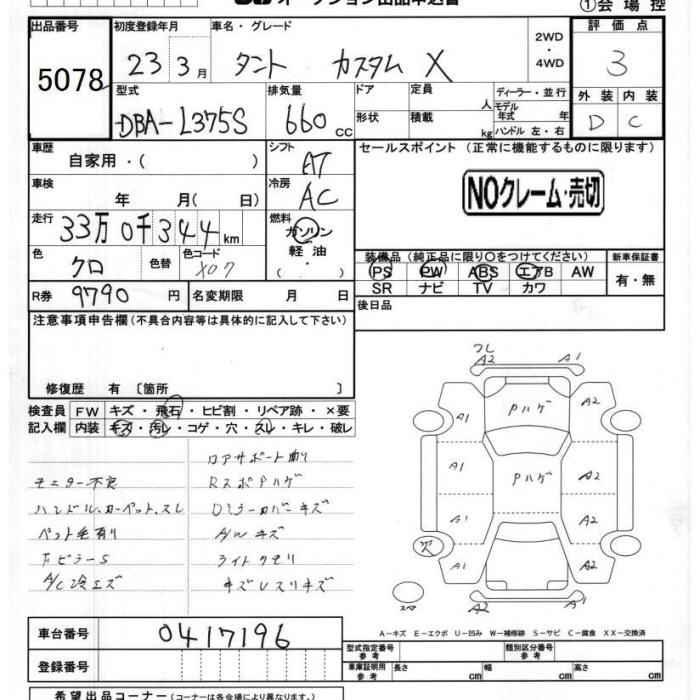 オークション出品申込書
①会場控
出品番号 初度登録年月 車名・グレード 2WD・4WD 評価点
5078 23年 3月 タント カスタム X 3
型式 排気量 ドア 定員 人 ディーラー・並行
DBA-L375S 660cc 形状 積載 kg モデル年式 年 ハンドル 左・右
外装 内装
D C
車歴 自家用・( ) シフト AT
セールスポイント(正常に機能するものに限ります)
NOクレーム・売切
車検 年 月( 日) 冷房 AC
走行 33万0千344km 燃料 ガソリン・軽油・( )
色 クロ 色替 色コード X07
装備品(純正品に限り○をつけてください) 新車保証書
PS PW ABS エアB AW 有・無
SR ナビ TV カワ
R券 9790円 名変期限 月 日 後日品
注意事項申告欄(不具合内容等は具体的に記入して下さい)
修復歴 有 〔箇所 〕
検査員 FW キズ・飛石・ヒビ割・リペア跡・×要
記入欄 内装 キズ・汚レ・コゲ・穴・スレ・キレ・破レ
ロアサポート曲り
モニター不良 RスポPハゲ
ハンドル、カーペット、スレ Dミラーカバーキズ
ペット毛有り A/Wキズ
FピラーS ライトクモリ
A/C冷エズ キズレスリキズ
ワレ
A2 A1
A1 Pハゲ A2
A1 Pハゲ A2
A1 A2
A1 A2
スペア A2 A1
A-キズ E-エクボ U-凹み W-補修跡 S-サビ C-腐食 XX-交換済
車台番号 0417196
型式指定番号 参考 類別区分番号 参考
登録番号
車庫証明用 参考 長さ cm 幅 cm 高さ cm
希望出品コーナー(コーナーは各会場により異なります。)